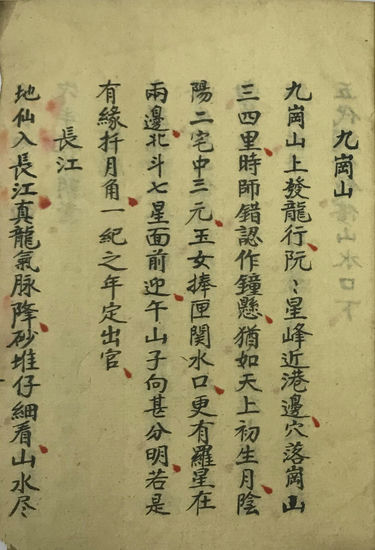 九崗山
九崗山上發龍行阮〻星峰近港邊穴落崗山
三四里時師錯認作鐘懸猶如天上初生月陰
陽二宅中三元玉女捧匣関水口更有羅星在
兩邊北斗七星面前迎午山子向甚分明若是
有緣扦月角一紀之年定出官
長江
地仙入長江真龍氣脉降砂堆仔細看山水尽